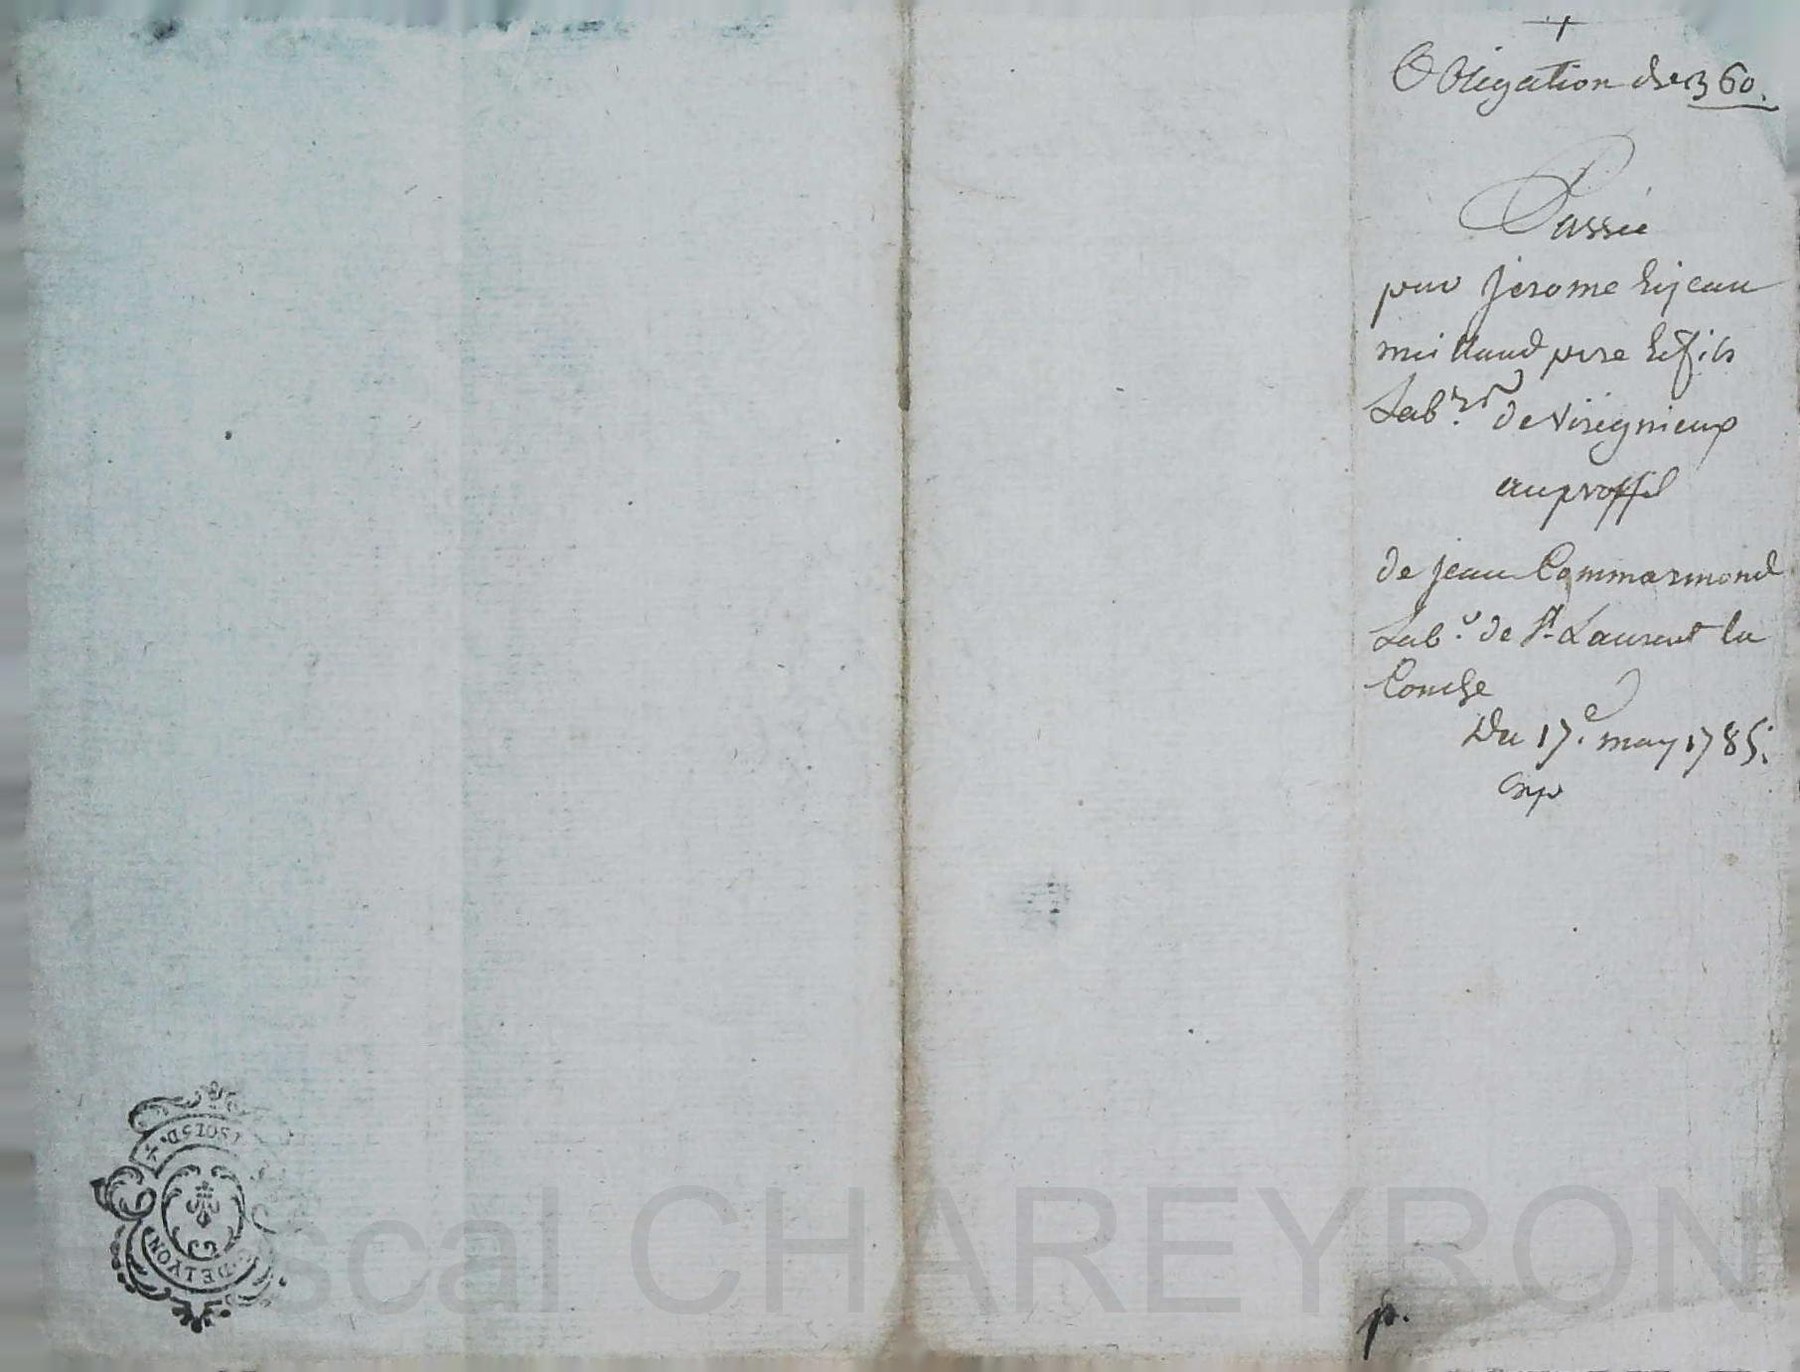 Obligation de 360.
Passée
par Jerome & jean
millaud pere & fils
Lab.rs de Virignieux
au proffit
de jean Commarmond
Lab.r de St. Laurent la
Conche
Du 17.e may 1785.
Exp
p.
2 SOLS D.
G. DE LYON
Pascal CHAREYRON